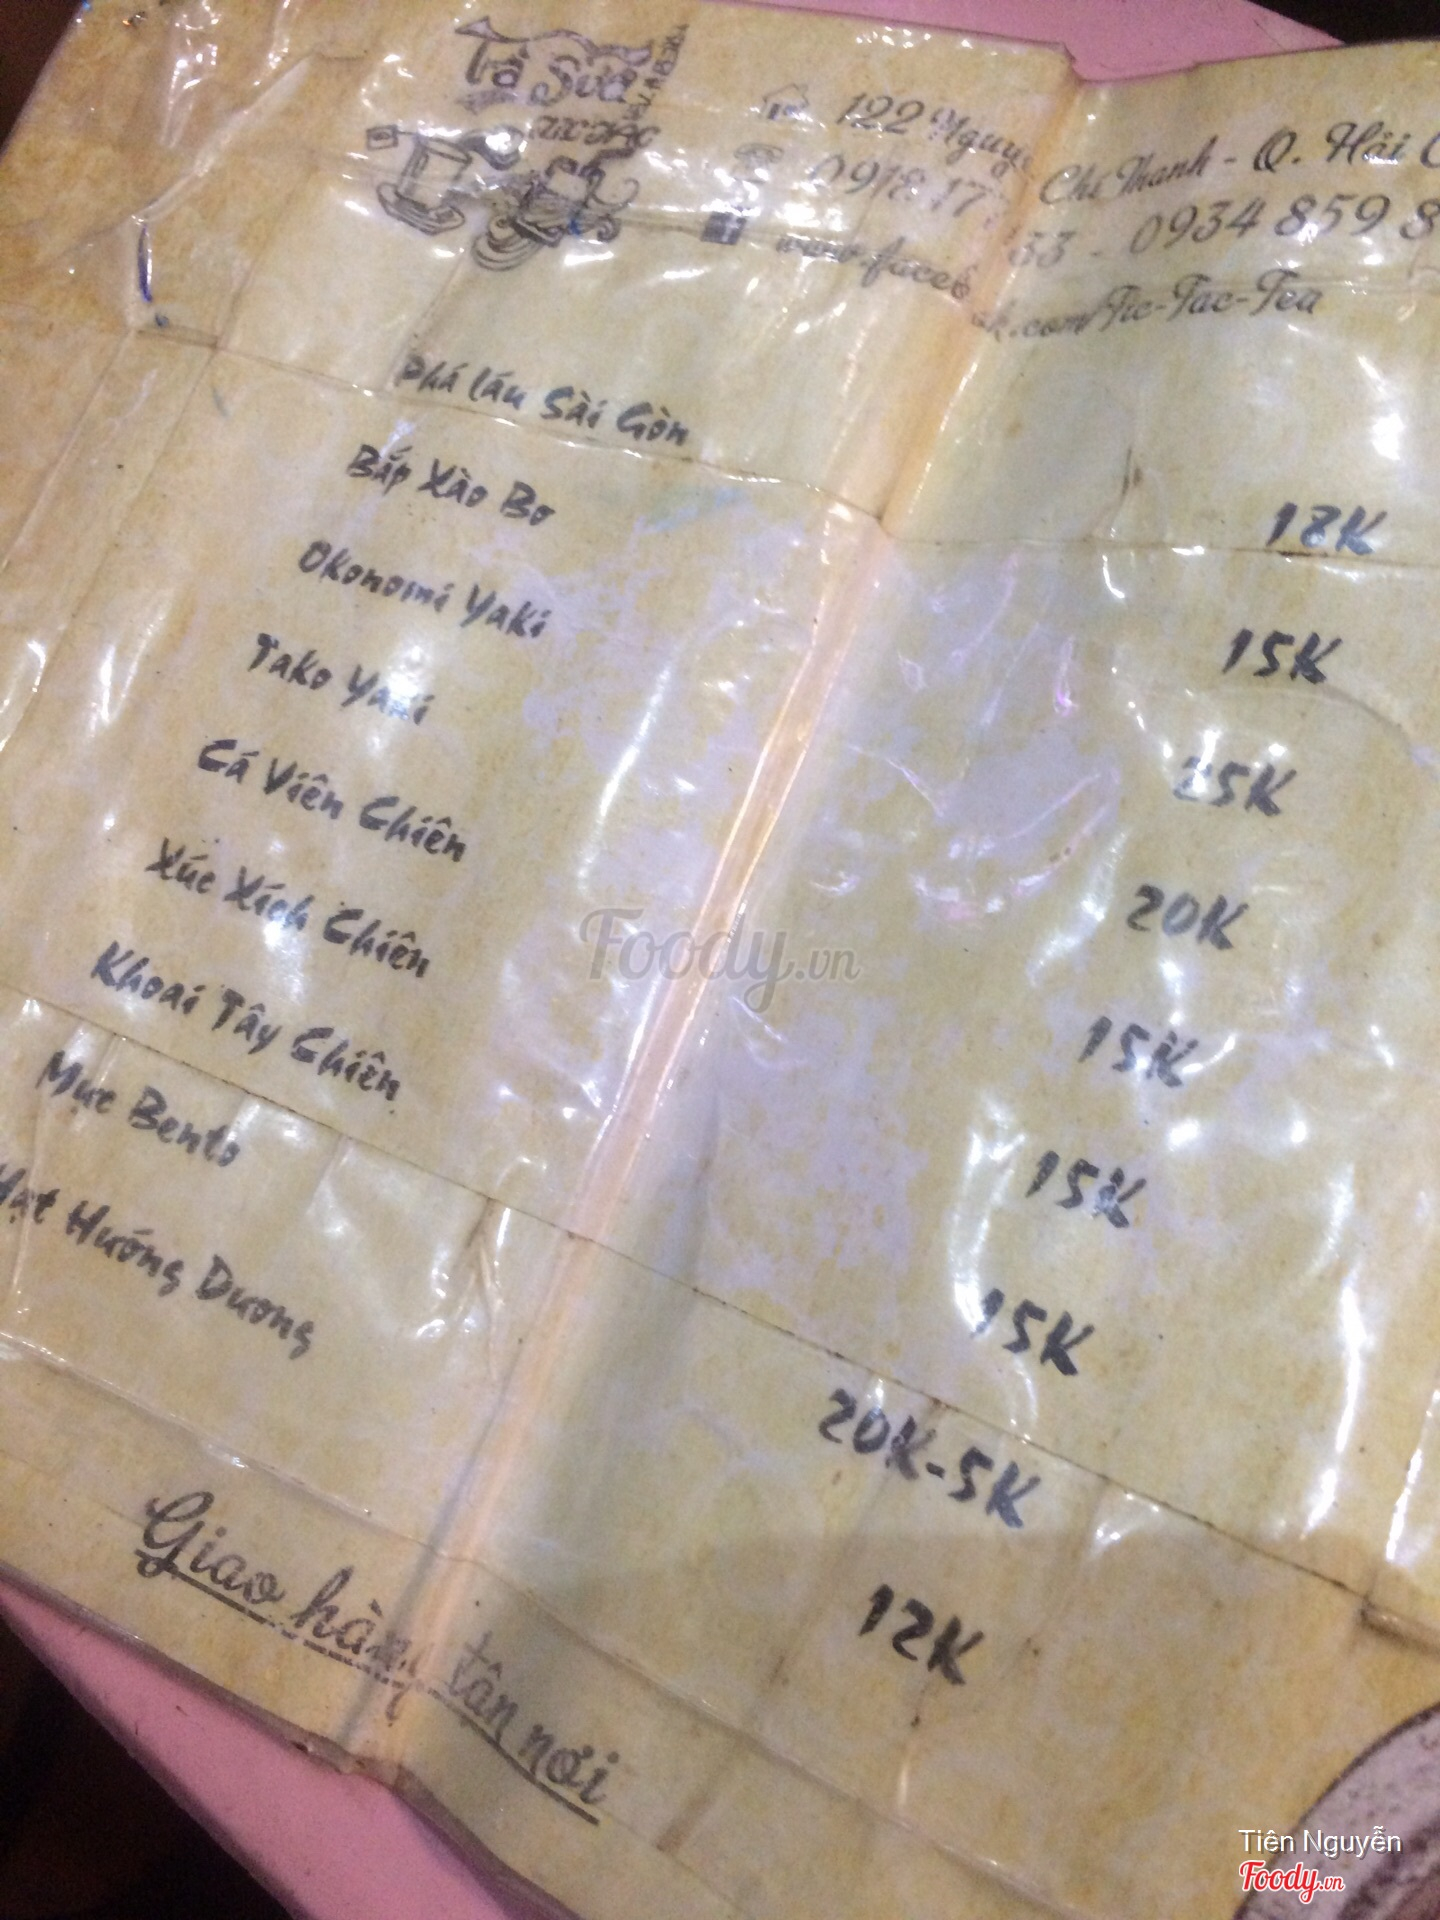 Trà Sữa
122 Nguy Chí Thanh - Q. Hải C
0918 17 33 - 0934 859 8
www.facebook.com/Tic-Tac-Tea
Phá lấu Sài Gòn 18K
Bắp Xào Bơ 15K
Okonomi Yaki 25K
Tako Yaki 20K
Cá Viên Chiên 15K
Xúc Xích Chiên 15K
Khoai Tây Chiên 15K
Mực Bento 20K-5K
Hạt Hướng Dương 12K
Giao hàng tận nơi
Foody.vn
Tiên Nguyễn
Foody.vn